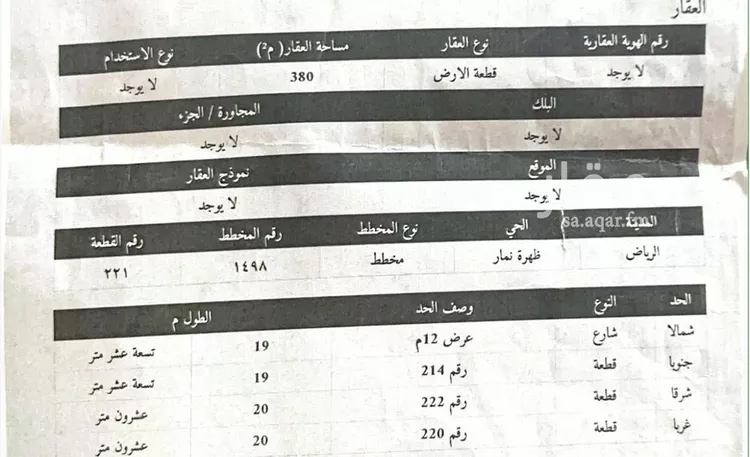 العقار
رقم الهوية العقارية نوع العقار مساحة العقار( م²) نوع الاستخدام
لا يوجد قطعة الارض 380 لا يوجد
البلك المجاورة / الجزء
لا يوجد لا يوجد
الموقع نموذج العقار
لا يوجد لا يوجد
عقار
sa.aqar.fm
المدينة الحي نوع المخطط رقم المخطط رقم القطعة
الرياض ظهرة نمار مخطط ١٤٩٨ ٢٢١
الحد النوع وصف الحد الطول م
شمالا شارع عرض 12م 19 تسعة عشر متر
جنوبا قطعة رقم 214 19 تسعة عشر متر
شرقا قطعة رقم 222 20 عشرون متر
غربا قطعة رقم 220 20 عشرون متر